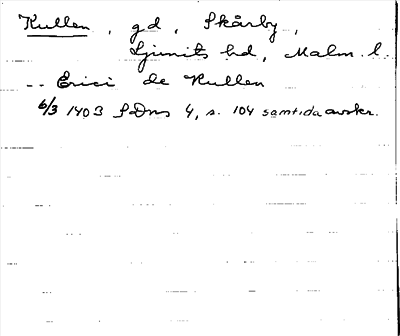 Kullen, gd, Skårby,
Ljunits hd, Malm. l.
-- Erici de Kullen
6/3 1403 SDns 4, s. 104 samtida avskr.